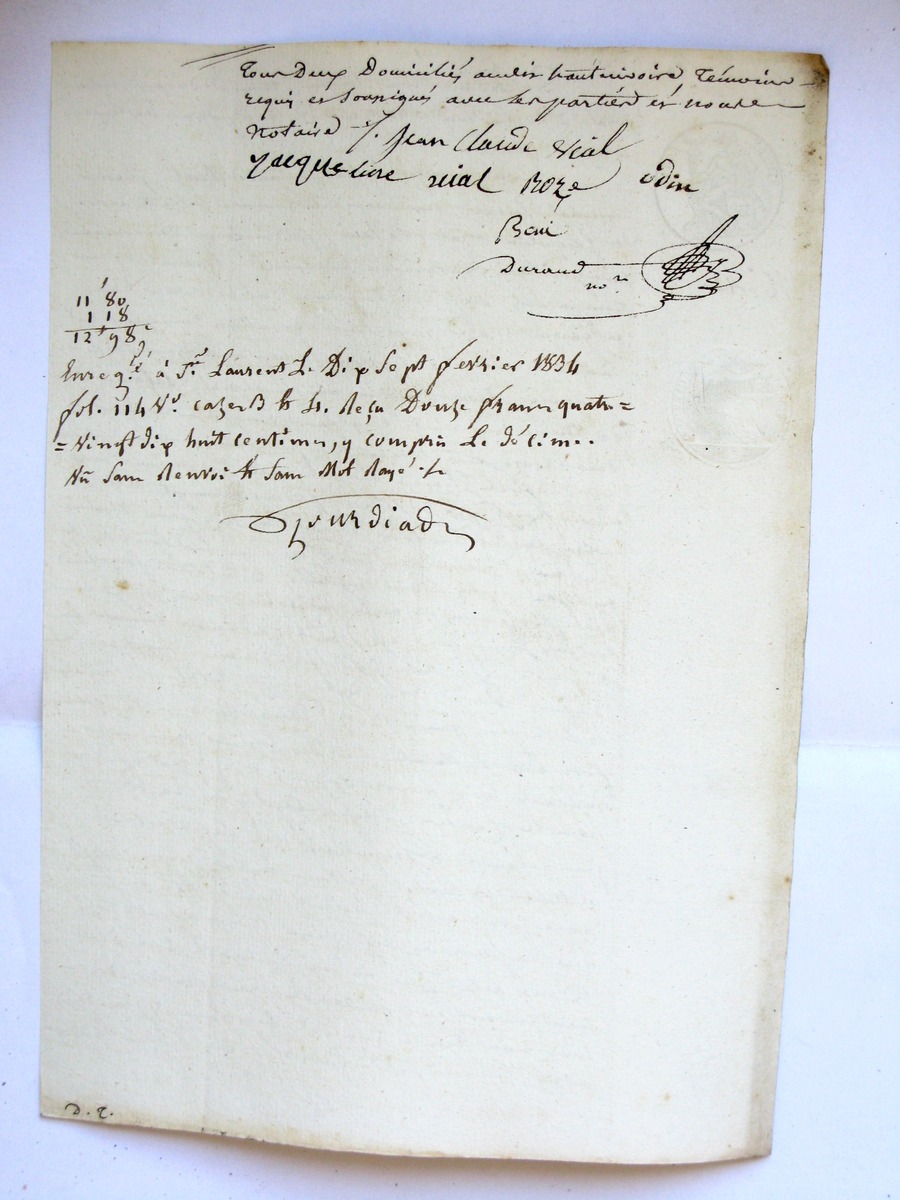 Tous Deux Domiciliés audit hautrivoire Témoins
requis et soussignés avec les parties et nous
Notaire ./.
Jean Claude Vial
Vial Roze Odin
Durand
no.re
11' 80
1 18
12' 98c
Enregtré à St Laurent Le Dix Sept fevrier 1834
fol. 114 Vo. caze 3 & 4. Reçu Douze francs quatre=
=vingt dix huit centimes, y compris Le décime..
Sans Renvoi & Sans Mot Rayé ./.
D. T.